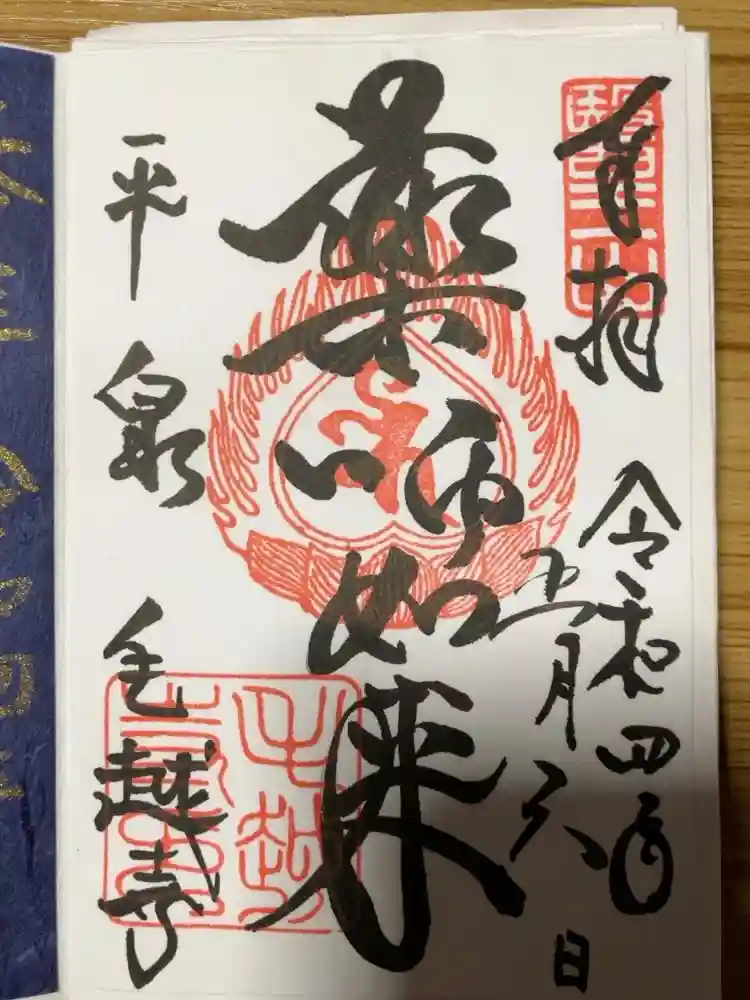 奉拝
令和四年
五月六日
薬師如来
平泉
毛越寺